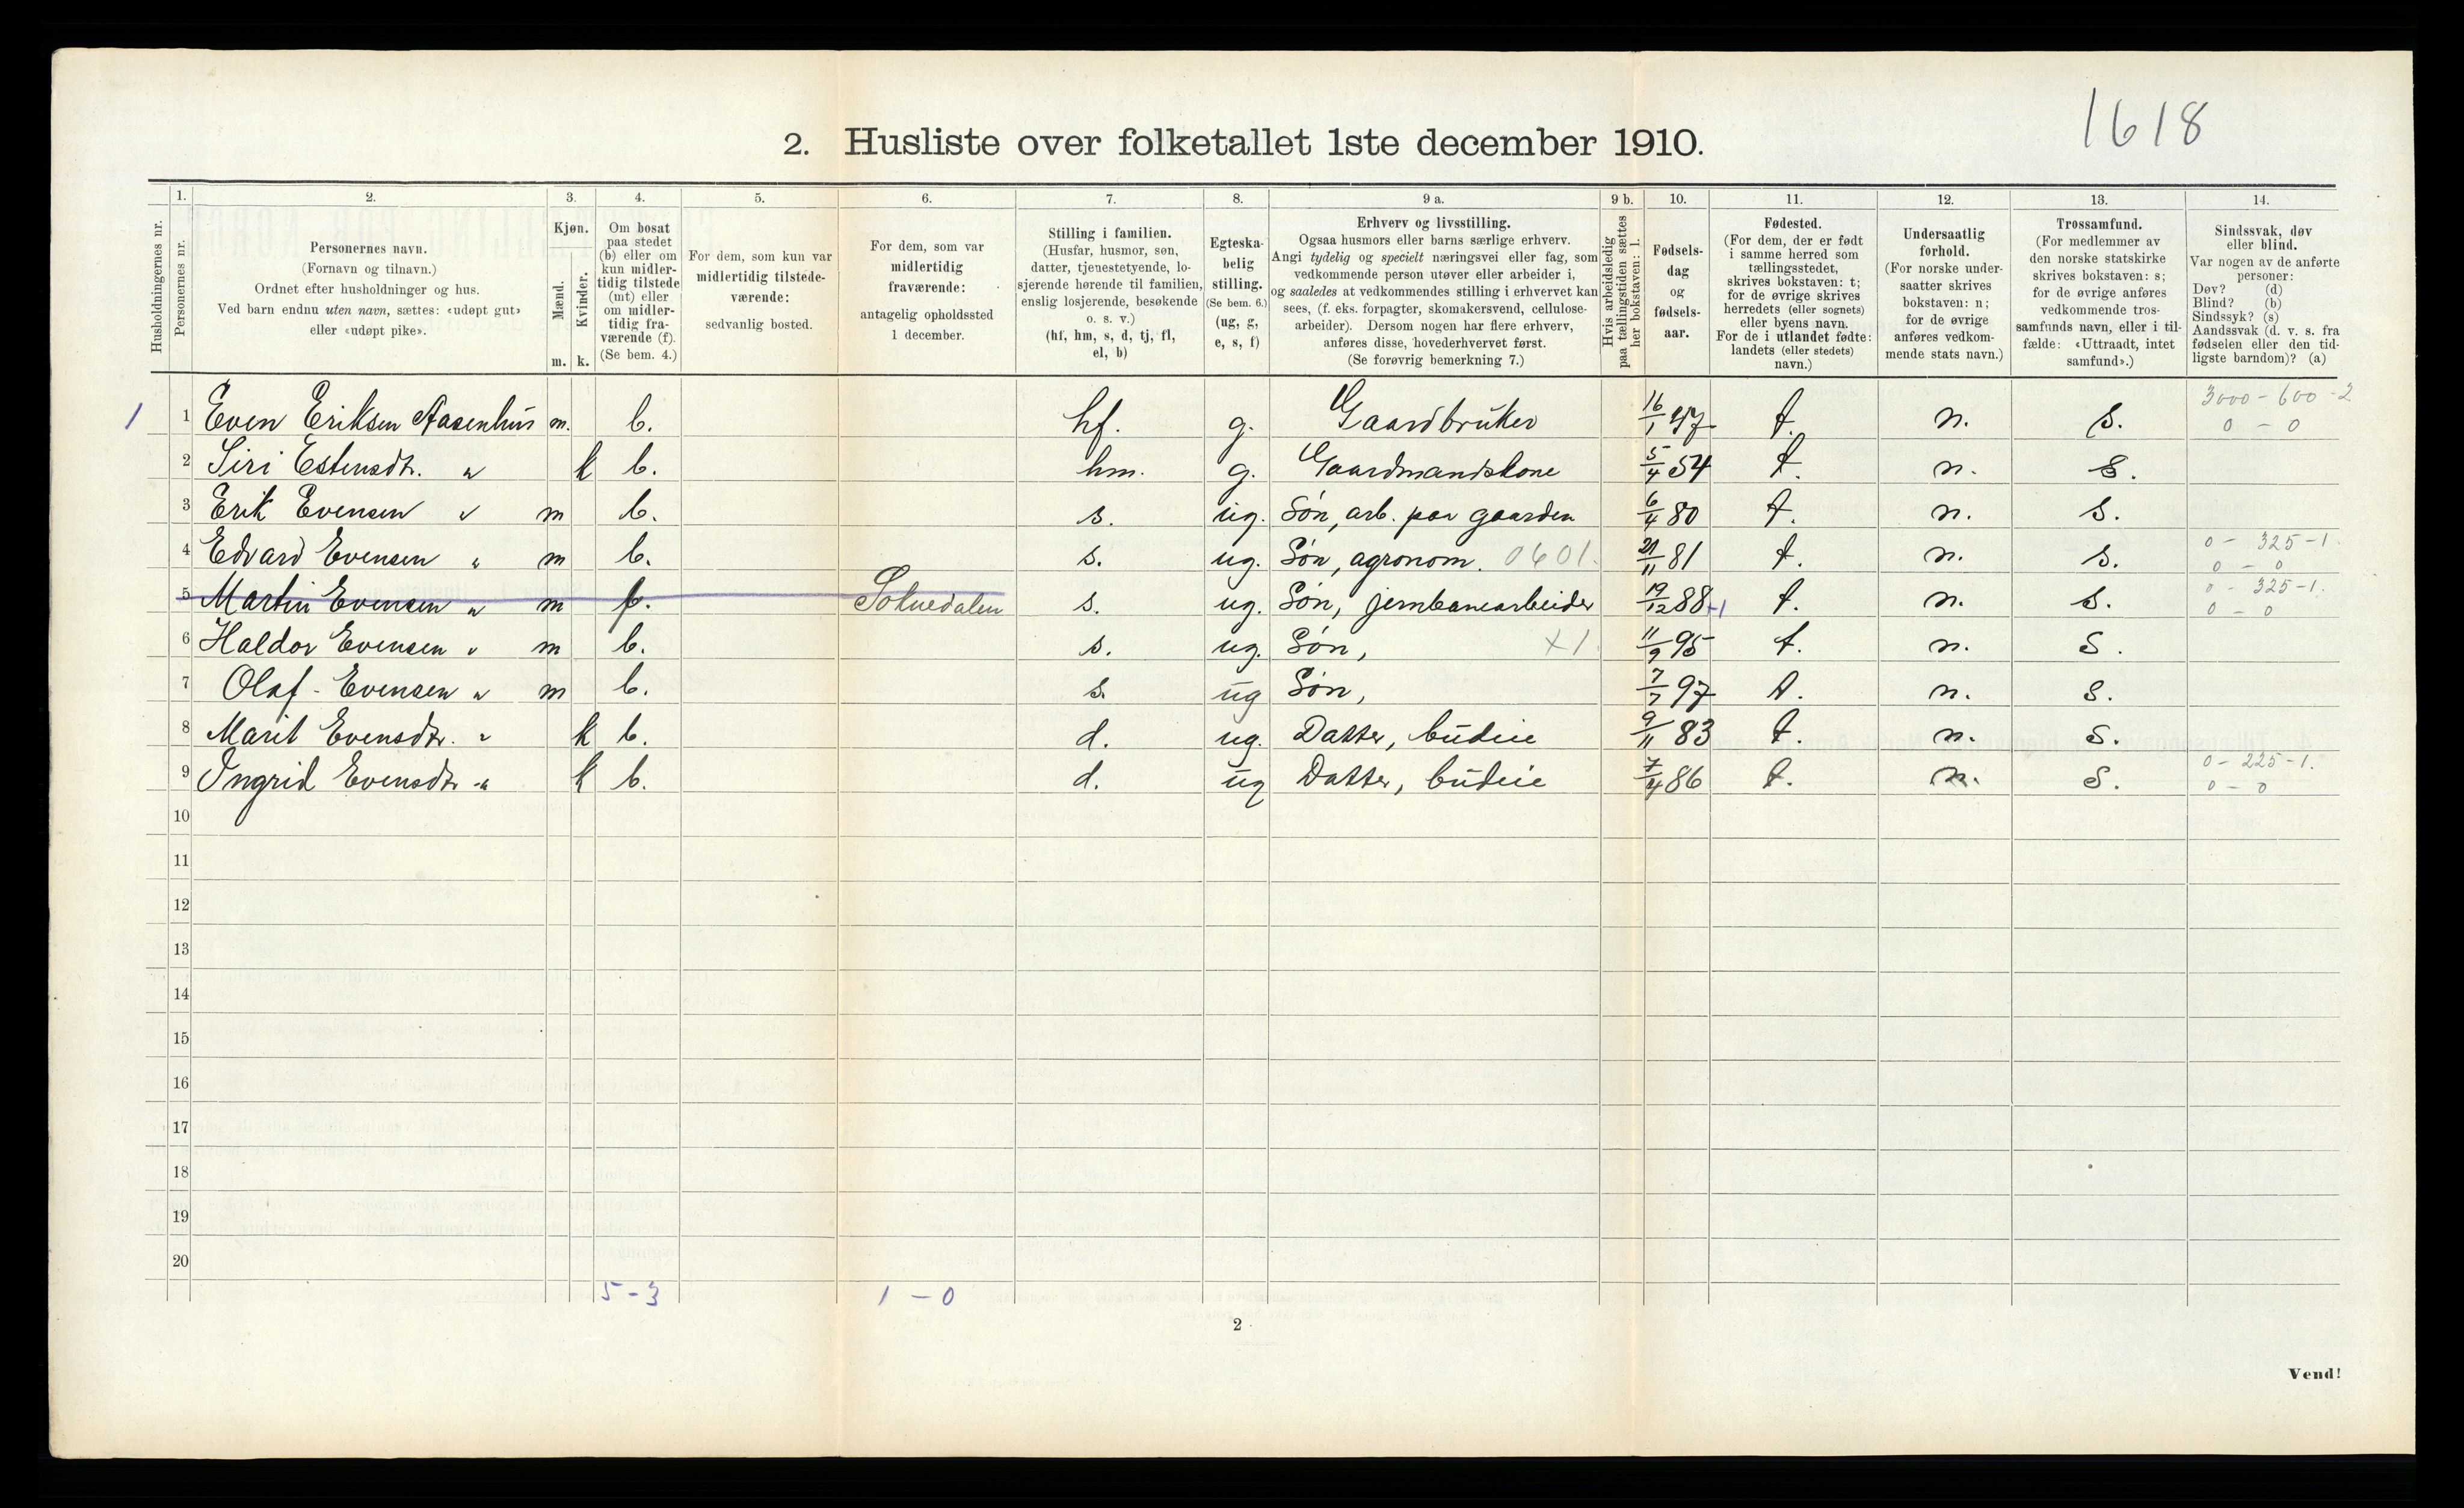 1618
2. Husliste over folketallet 1ste december 1910.
Husholdningernes nr.
1.
Personernes nr.
2.
Personernes navn.
(Fornavn og tilnavn.)
Ordnet efter husholdninger og hus.
Ved barn endnu uten navn, sættes: «udøpt gut»
eller «udøpt pike».
3.
Kjøn.
Mænd.
Kvinder.
m. k.
4.
Om bosat
paa stedet
(b) eller om
kun midler-
tidig tilstede
(mt) eller
om midler-
tidig fra-
værende (f).
(Se bem. 4.)
5.
For dem, som kun var
midlertidig tilstede-
værende:
sedvanlig bosted.
6.
For dem, som var
midlertidig
fraværende:
antagelig opholdssted
1 december.
7.
Stilling i familien.
(Husfar, husmor, søn,
datter, tjenestetyende, lo-
sjerende hørende til familien,
enslig losjerende, besøkende
o. s. v.)
(hf, hm, s, d, tj, fl,
el, b)
8.
Egteska-
belig
stilling.
(Se bem. 6.)
(ug, g,
e, s, f)
9 a.
Erhverv og livsstilling.
Ogsaa husmors eller barns særlige erhverv.
Angi tydelig og specielt næringsvei eller fag, som
vedkommende person utøver eller arbeider i,
og saaledes at vedkommendes stilling i erhvervet kan
sees, (f. eks. forpagter, skomakersvend, cellulose-
arbeider). Dersom nogen har flere erhverv,
anføres disse, hovederhvervet først.
(Se forøvrig bemerkning 7.)
9 b.
Hvis arbeidsledig
paa tællingstiden sættes
her bokstaven: l.
10.
Fødsels-
dag
og
fødsels-
aar.
11.
Fødested.
(For dem, der er født
i samme herred som
tællingsstedet,
skrives bokstaven: t;
for de øvrige skrives
herredets (eller sognets)
eller byens navn.
For de i utlandet fødte:
landets (eller stedets)
navn.)
12.
Undersaatlig
forhold.
(For norske under-
saatter skrives
bokstaven: n;
for de øvrige
anføres vedkom-
mende stats navn.)
13.
Trossamfund.
(For medlemmer av
den norske statskirke
skrives bokstaven: s;
for de øvrige anføres
vedkommende tros-
samfunds navn, eller i til-
fælde: «Uttraadt, intet
samfund».)
14.
Sindssvak, døv
eller blind.
Var nogen av de anførte
personer:
Døv? (d)
Blind? (b)
Sindssyk? (s)
Aandssvak (d. v. s. fra
fødselen eller den tid-
ligste barndom)? (a)
1 1 Even Eriksen Aasenhus m. b. hf. g. Gaardbruker 16/1 47 t. n. s. 3000 - 600 - 2
0 - 0
2 Siri Estensdtr. " k b. hm. g. Gaardmandskone 5/4 54 t. n. s.
3 Erik Evensen " m b. s. ug. Søn, arb. paa gaarden 6/4 80 t. n. s.
4 Edvard Evensen " m b. s. ug. Søn, agronom. 0601. 21/11 81 t. n. s. 0 - 325 - 1.
0 - 0
5 Martin Evensen " m f. Soknedalen s. ug. Søn, jernbanearbeider 19/12 88 +1 t. n. s. 0 - 325 - 1.
0 - 0
6 Haldor Evensen " m b. s. ug. Søn, x1. 11/9 95 t. n. s.
7 Olaf Evensen " m b. s. ug Søn, 7/7 97 t. n. s.
8 Marit Evensdtr. " k b. d. ug. Datter, budeie 9/11 83 t. n. s.
9 Ingrid Evensdtr " k b. d. ug Datter, budeie 7/4 86 t. n. s. 0 - 225 - 1.
0 - 0
10
11
12
13
14
15
16
17
18
19
20
5 - 3 1 - 0
2
Vend!